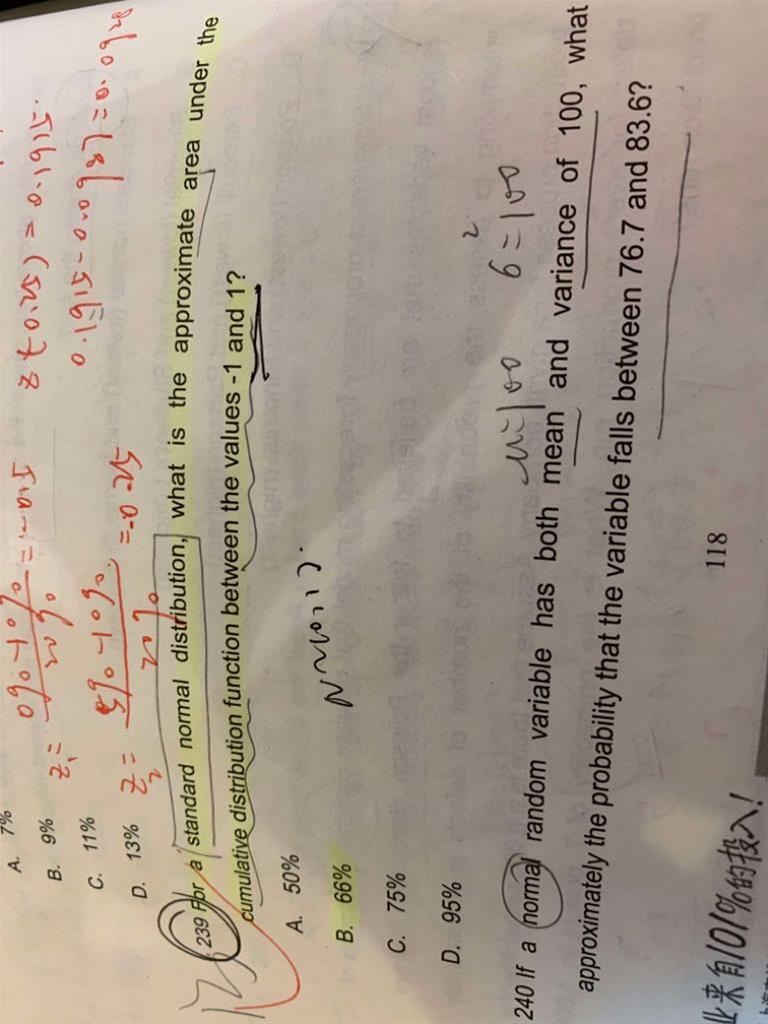 A. 7%
B. 9%
C. 11%
D. 13%
Z₁ = 0% - 10% / 20% = -0.5
Z₂ = 5% - 10% / 20% = -0.25
0.1915
0.1915 - 0.0987 = 0.0928
239 For a standard normal distribution, what is the approximate area under the
cumulative distribution function between the values -1 and 1?
N~(0,1).
A. 50%
B. 66%
C. 75%
D. 95%
u=100 6²=100
240 If a normal random variable has both mean and variance of 100, what
approximately the probability that the variable falls between 76.7 and 83.6?
118
业来自101%的投入!